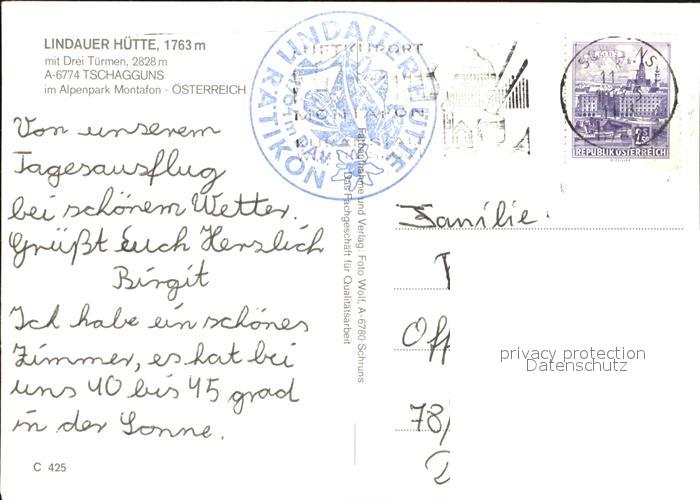 LINDAUER HÜTTE, 1763 m
mit Drei Türmen, 2828 m
A-6774 TSCHAGGUNS
im Alpenpark Montafon - ÖSTERREICH
Von unserem
Tagesausflug
bei schönem Wetter.
Grüßt Euch Herzlich
Birgit
Ich habe ein schönes
Zimmer, es hat bei
uns 40 bis 45 grad
in der Sonne.
C 425
LINDAUER HÜTTE
RÄTIKON
LUFTKURORT
MONTAFON
SCHRUNS
11
2.50
REPUBLIK ÖSTERREICH
Farbaufnahme und Verlag: Foto Wolf, A-6780 Schruns
Das Fachgeschäft für Qualitätsarbeit
Familie
Off
78/
privacy protection
Datenschutz